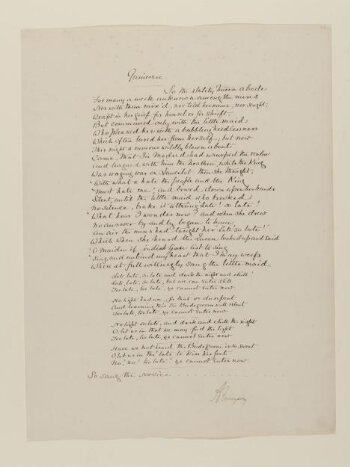 Guinevere
So the stately Queen abode
For many a week, unknown, among the nuns
Nor with them mix'd, nor told her name, nor sought,
Wrapt in her grief, for housel or for shrift,
But communed only with the little maid
Who pleased her with a babbling heedlessness
Which often lured her from herself; but now
This night a rumour wildly blown about
Came that Sir Modred had usurp'd the realm
And leagued him with the heathen, while the King
Was waging war on Lancelot: then she thought,
With what a hate the people and the King
Must hate me, and bow'd down upon her hands
Silent, until the little maid, who brook'd
No silence, brake it uttering late! so late!
What hour, I wonder, now? and when she drew
No answer, by and by began to hum
An air the nuns had taught her, late so late!
Which when she heard, the Queen look'd up, and said
O maiden, if indeed you list to sing
Sing, and unbind my heart that I may weep.
Whereat full willingly sang the little maid.
Late late, so late and dark the night and chill
Late late, so late, but we can enter still
Too late, too late, ye cannot enter now
No light had we, for that we do repent
And learning this the Bridegroom will relent
Too late, too late, ye cannot enter now
No light, so late, and dark and chill the night
O let us in that we may find the light
Too late, too late, ye cannot enter now
Have we not heard the Bridegroom is so sweet
O let us in tho' late to kiss his feet
No! No! too late! ye cannot enter now.
So sang the novice . . .
ATennyson